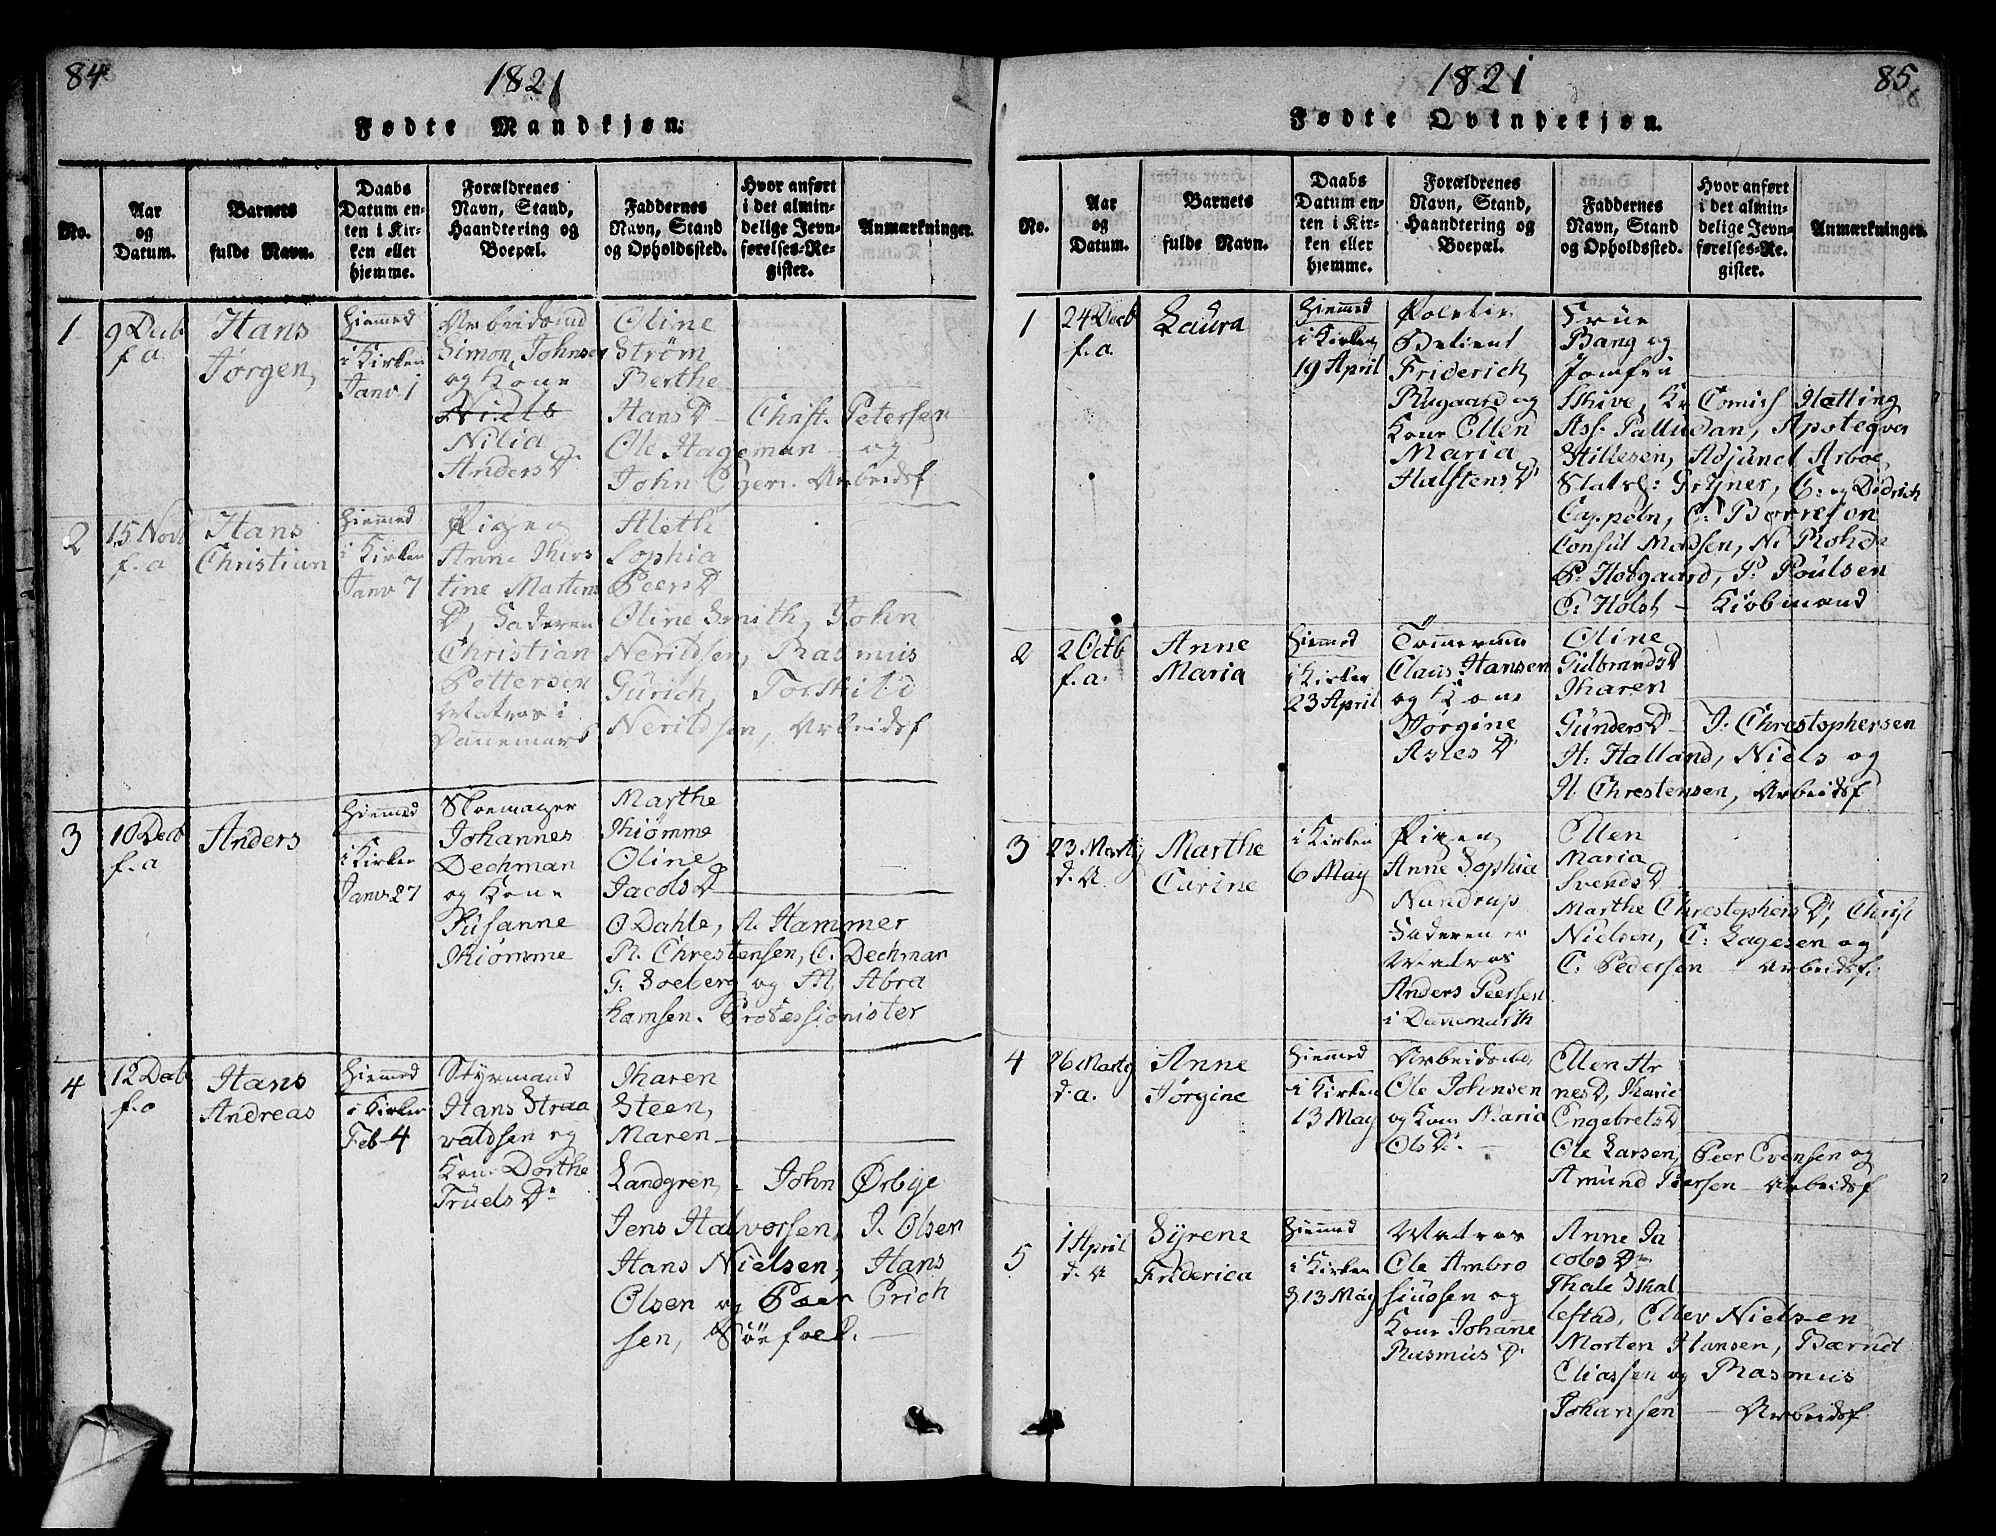 84
1821
Fødte Mandkjøn.
No.
Aar
og
Datum.
Barnets
fulde Navn.
Daabs
Datum en-
ten i Kir-
ken eller
hjemme.
Forældrenes
Navn, Stand,
Haandtering og
Boepæl.
Faddernes
Navn, Stand
og Opholdssted.
Hvor anført
i det almin-
delige Jevn-
førelses-Re-
gister.
Anmærkninger.
1
9 Decb
f. a
Hans
Jørgen,
Hiemmed
i Kirken
Janv 1
Arbeidsmd
Simon Johnsen
og Kone
Niels
Nilia
Anders D
Oline
Strøm
Berthe
Hans D – Christ. Petersen
Ole Hageman – og
John Egeri. Arbeidsf
2
15 Novb
f. a
Hans
Christian
Hiemmed
i Kirken
Janv 7
Pigen
Anne Khirs
tine Martens
D, Faderen
Christian
Pettersen
Matros i
Dannemark
Aleth
Sophia
Peers D
Oline Smith, John
Nerildsen, Rasmus
Gürich, Torskild
Nerildsen, Arbeidsf
3
10 Decb
f. a
Anders
Hiemmed
i Kirken
Janv 27
Skoemager
Johannes
Dechman
og Kone
Susanne
Khiømme
Marthe
Khiømme
Oline
Jacobs D
O Dahle, A. Hammer
R. Chrestensen, C. Dechman
G. Soeberg og M. Abra
hamsen. Professionister
4
12 Decb
f. a
Hans
Andreas
Hiemmed
i Kirken
Feb 4
Styrmand
Hans Straa
valdsen og
Kone Dorthe
Truels D
Kharen
Steen,
Maren
Landgren, John Ørbye
Jens Halvorsen, J. Olsen
Hans Nielsen, Hans
Olsen og Peer Erich
sen, Søefoel. –
1821
85
Fødte Qvindekjøn.
No.
Aar
og
Datum.
Barnets
fulde Navn.
Daabs
Datum en-
ten i Kir-
ken eller
hjemme.
Forældrenes
Navn, Stand,
Haandtering og
Boepæl.
Faddernes
Navn, Stand
og Opholdssted.
Hvor anført
i det almin-
delige Jevn-
førelses-Re-
gister.
Anmærkninger.
1
24 Decb
f. a.
Laura
Hiemmed
i Kirken
19 April
Poletie
Betient
Friderich
Rugaard og
Kone Ellen
Maria
Halstens D
Frue
Bang og
Jomfru
Skive, Kr Comiss Hetting
Ass. Palludan, Apoteqver
Hillesen, Adjunct Arboe,
Slatsh: Grüner, C: og Didrich
Cappeln, C: Borresen
Consul Madsen, N: Rohde
P. Hofgaard, P. Poulsen
C: Holst – Kiøbmænd
2
2 Octb
f. a.
Anne
Maria
Hiemmed
i Kirken
23 April
Tømmermd
Claus Hansen
og Kone
Jorgine
Asles D
Oline
Gulbrands D
Kharen
Gunders D – J. Chrestophersen
H: Halland, Niels og
H. Chrestensen, Arbeidsf
3
23 Marty
d. A.
Marthe
Carine
i Kirken
6 May
Pigen
Anne Sophia
Nundrup
Faderen er
Matros
Anders Peersen
i Dannemark
Ellen
Maria
Svends D
Marthe Chrestophers D, Christ
Nielsen, C: Lagesen og
C. Pedersen – Arbeidsf.
4
26 Marty
d. a.
Anne
Jørgine
Hiemmed
i Kirken
13 May
Arbeidsmd
Ole Johnsen
og Kone Maria
Ols D. –
Ellen Ar
nes D, Karie
Engebrets D
Ole Larsen, Peer Evensen og
Amund Peersen – Arbeidsf
5
1 April
d. A
Syrene
Friderica
Hiemmed
i Kirken
13 May
Matros
Ole Ambro
siussen og
Kone Johanne
Rasmus D
Anne Ja
cobs D
Thale Skal
lestad, Ellev Nielsen
Morten Hansen, Bærndt
Eliassen og Rasmus
Johansen – Arbeidsf.